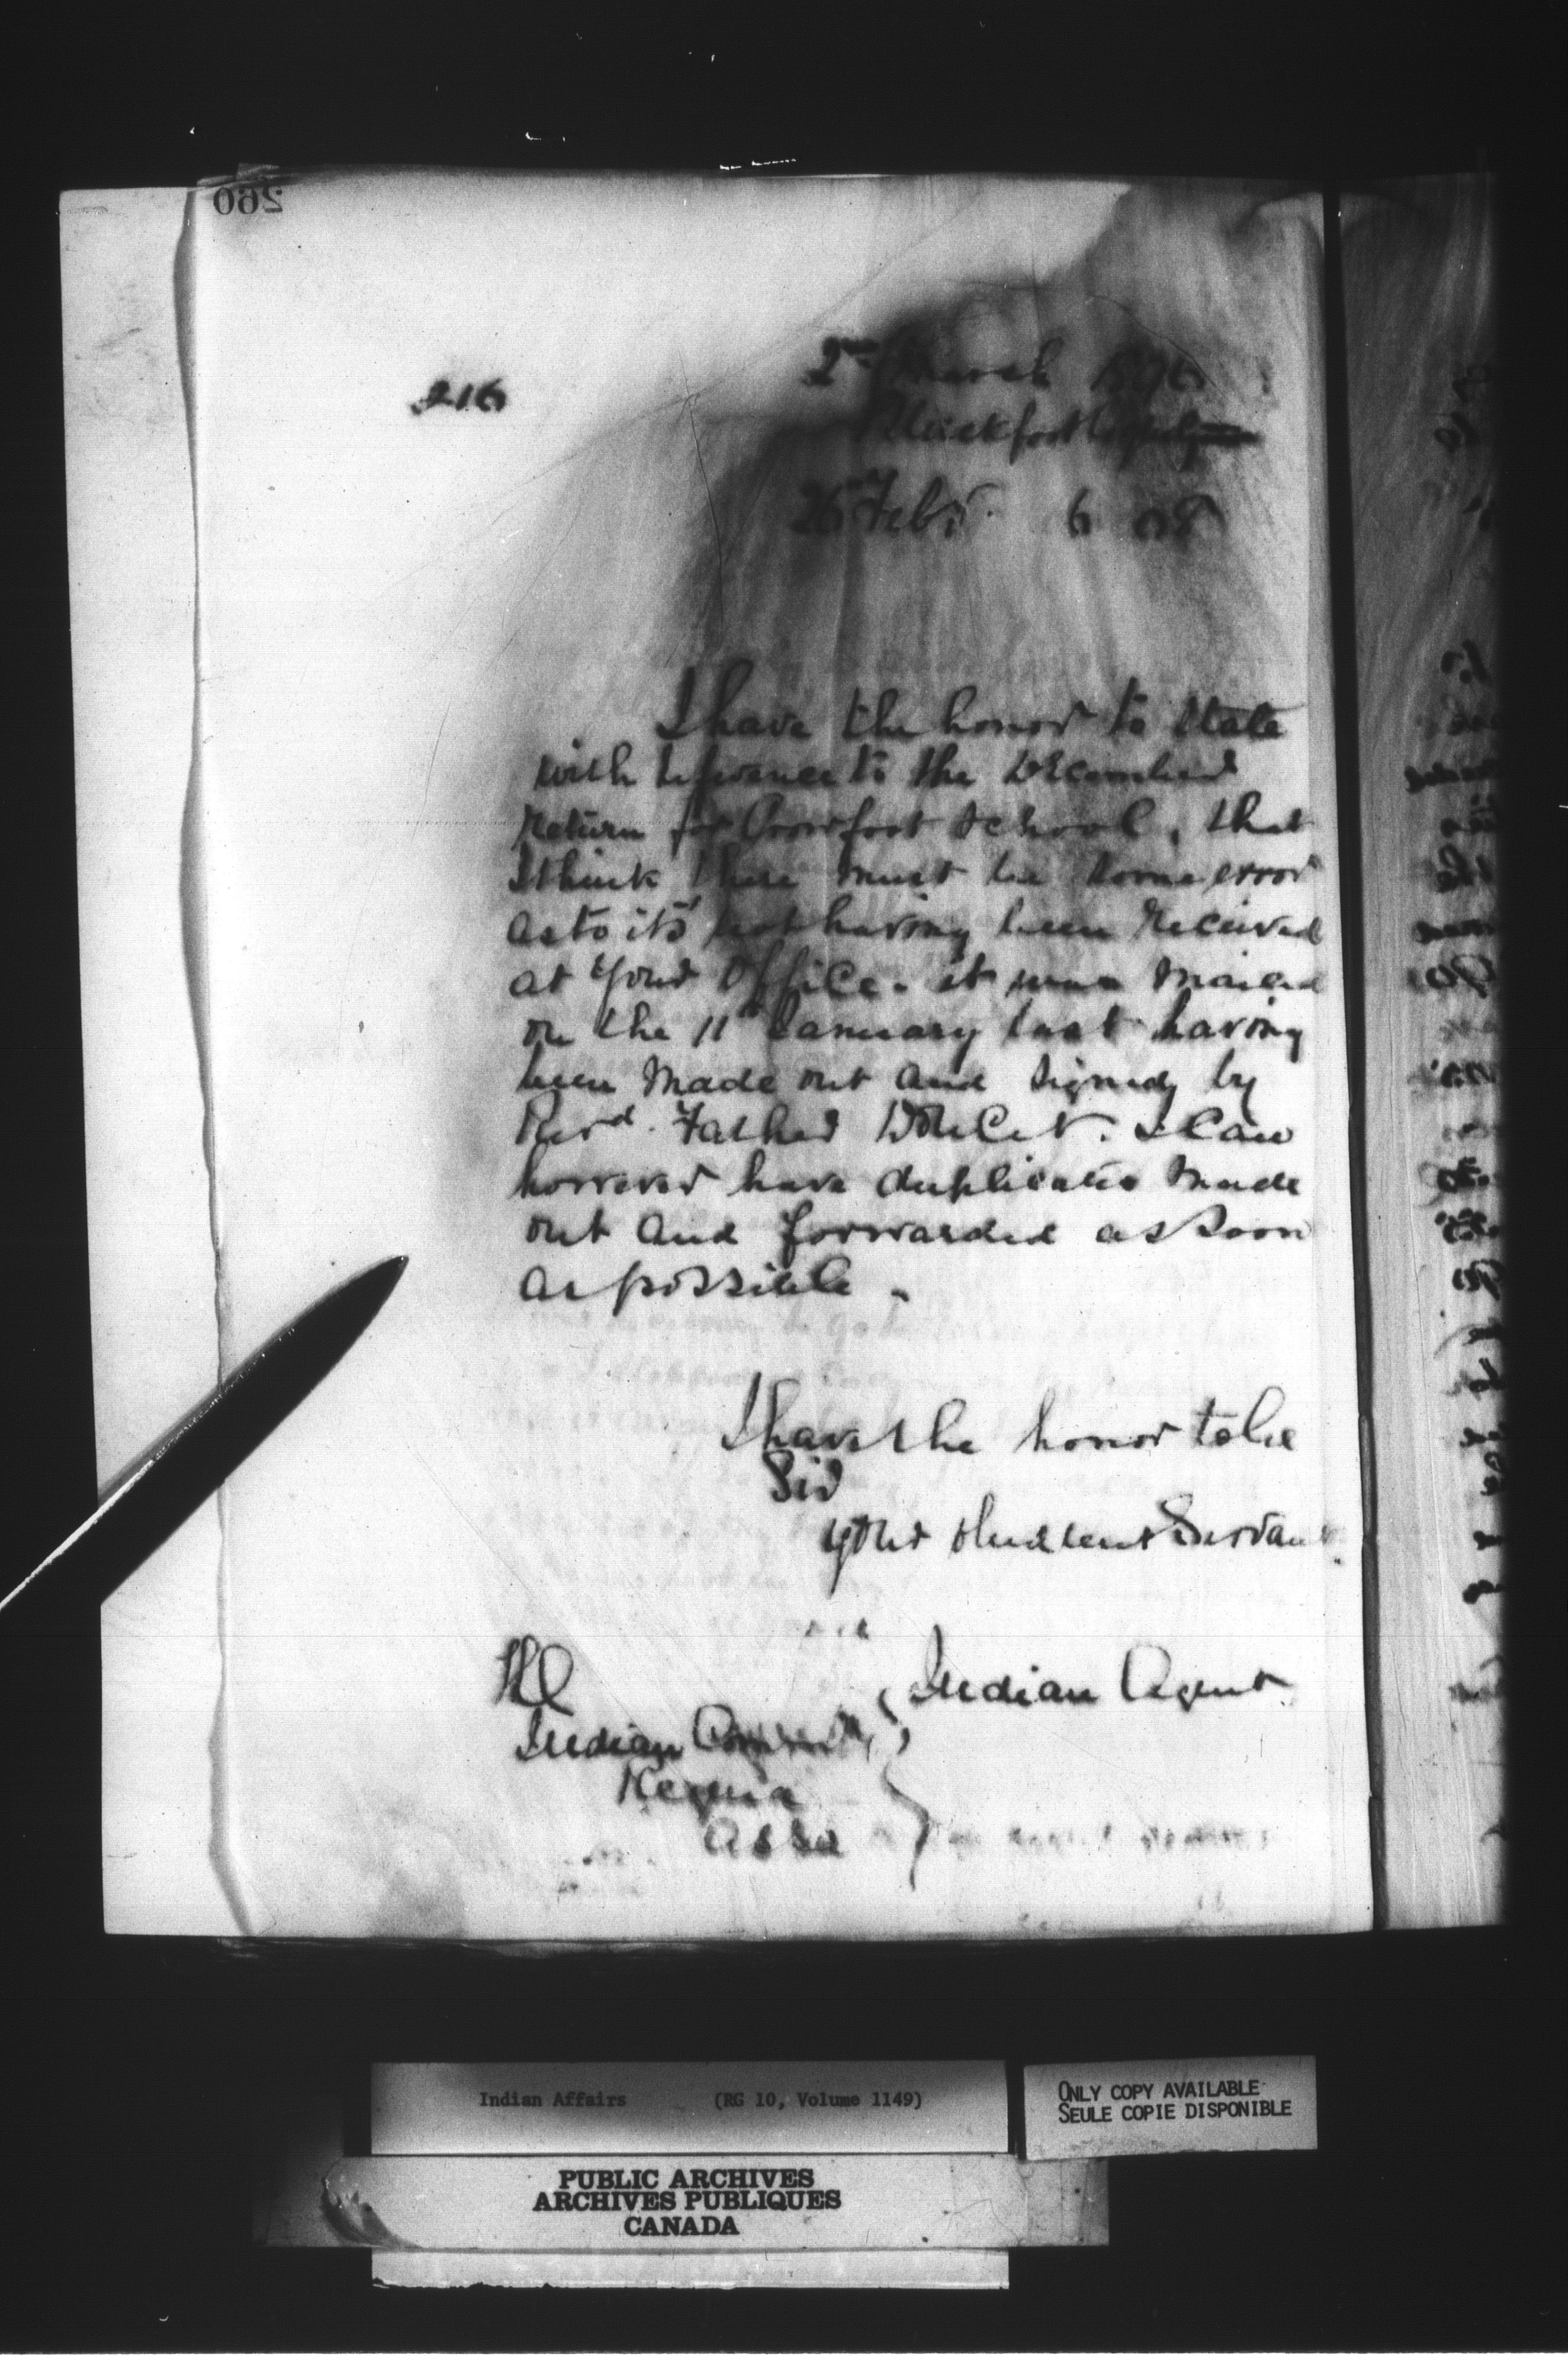 260
216
2nd March 1896
Blackfoot
26th Feby. 6 08
I have the honor to State
with reference to the December
Return for Crowfoot School, that
I think there must be some error
as to its not having been Received
at your Office. it was Mailed
on the 11th January last having
been Made out and Signed by
Revd. Father Doucet. I Can
however have duplicates Made
out and forwarded as Soon
as possible -
I have the honor to be
Sir
your obedient Servant
Indian Agent
The
Indian Commr
Regina
Assa
Indian Affairs (RG 10, Volume 1149)
ONLY COPY AVAILABLE
SEULE COPIE DISPONIBLE
PUBLIC ARCHIVES
ARCHIVES PUBLIQUES
CANADA